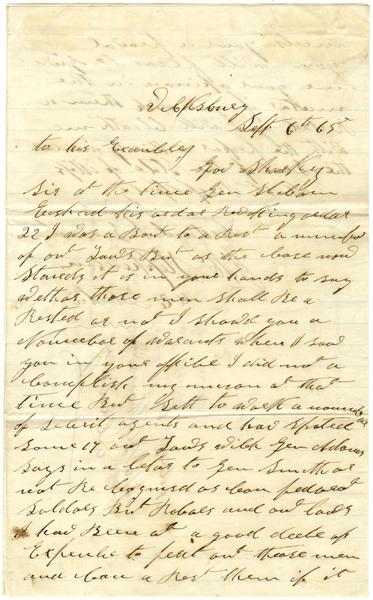 Vicksburg
Sept 6th 65
to his Excenlency
Gov Sharkey
Sir at the time Gen Slocum
Ishued his ordar Revoking ordar
22 I was a Bout to a Rest a number
of out Laws But as the case now
Stands it is in your hands to say
wethar those men shall Be a
Rested or not I should you a
Noumbar of warants when I saw
you in your offibe I did not a
Complish my mison at that
time But Sett to work a noumbar
of Secrit agents and had Spoted
Some 17 out Laws wich Gen Adams
says in a letar to Gen Smith ar
not Re Cognised as Confedarat
Soldars But Robars and out Laws
I had Been at a good deele of
Expence to feret out those men
and Can a Rest them if it